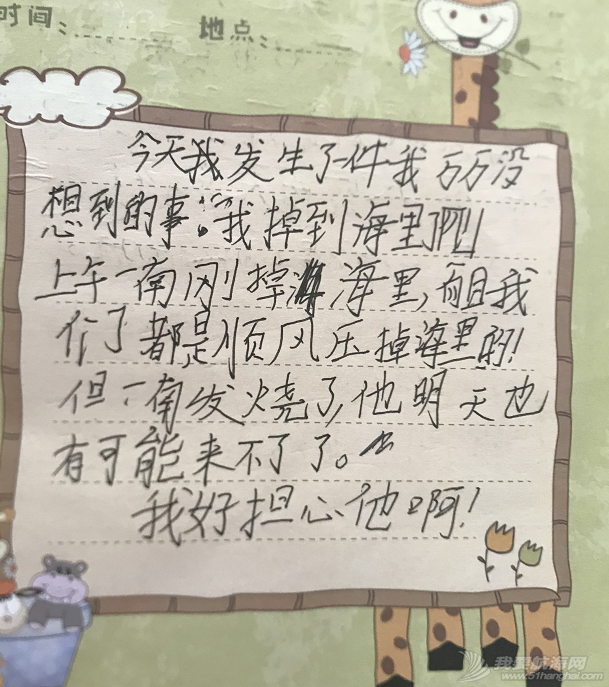 时间:
地点:
今天我发生了一件我万万没
想到的事:我掉到海里了啊!!
上午一南刚掉 海里,而且我
们了都是顺风压掉海里的!
但一南发烧了,他明天也
有可能来不了了。
我好担心他啊!
我要航海网
www.51hanghai.com